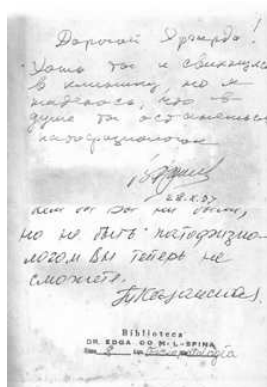 Дорогой Эдгардо!
Хоть ты и свихнулся
в клинику, но я
надеюсь, что в
душе ты останешься
патофизиологом
28.X.97
но не быть патофизио-
логом Вы теперь не
сможете.
Biblioteca
DR. EDGARDO M. L. SPINA